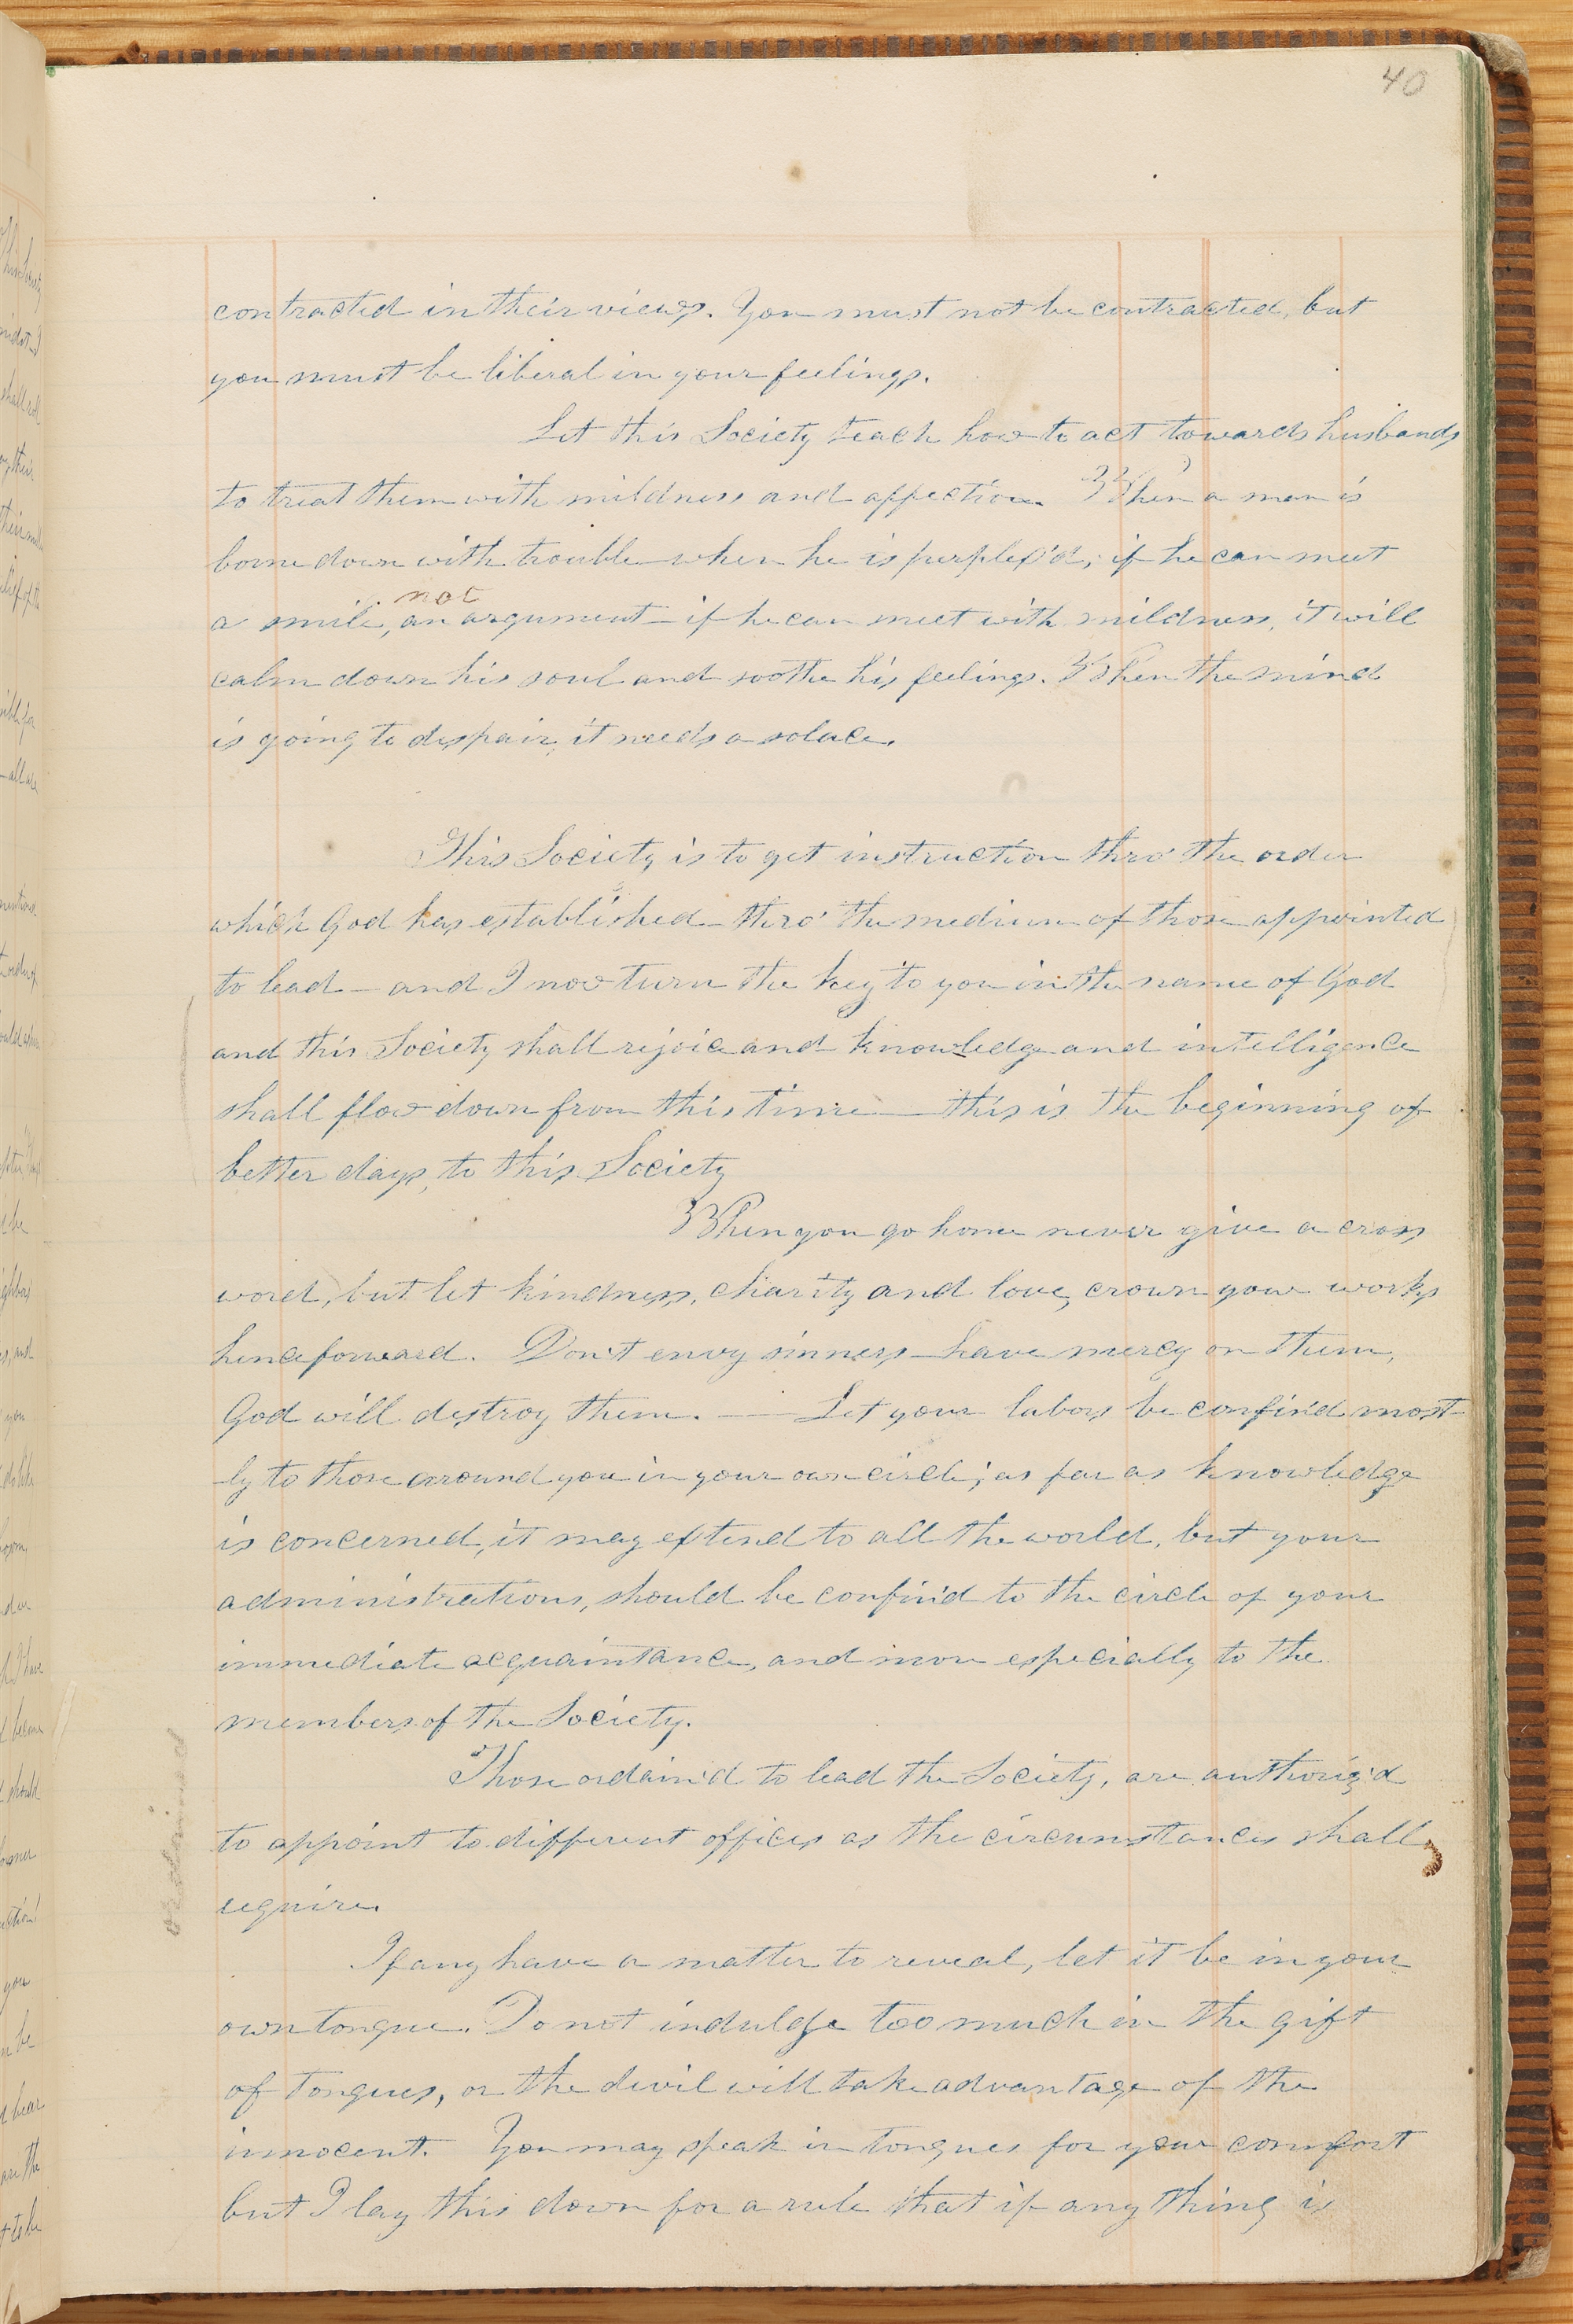 40
contracted in their views. You must not be contracted, but
you must be liberal in your feelings.
Let this Society teach how to act towards husbands
to treat them with mildness and affection. When a man is
borne down with trouble when he is perplex'd, if he can meet
not
a smile, an argument — if he can meet with mildness, it will
calm down his soul and soothe his feelings. When the mind
is going to despair, it needs a solace.
This Society is to get instruction thro' the order
which God has established — thro' the medium of those appointed
to lead — and I now turn the key to you in the name of God
and this Society shall rejoice and knowledge and intelligence
shall flow down from this time — this is the beginning of
better days, to this Society
When you go home never give a cross
word, but let kindness, charity and love, crown your works
henceforward. Don't envy sinners — have mercy on them,
God will destroy them. — Let your labors be confin'd most-
ly to those around you in your own circle; as far as knowledge
is concerned, it may extend to all the world, but your
administrations, should be confin'd to the circle of your
immediate acquaintance, and more especially to the
members of the Society.
Those ordain'd to lead the Society, are authoriz'd
to appoint to different offices as the circumstances shall
require.
If any have a matter to reveal, let it be in your
own tongue. Do not indulge too much in the gift
of tongues, or the devil will take advantage of the
innocent. You may speak in tongues for your comfort
but I lay this down for a rule that if any thing is
ordained